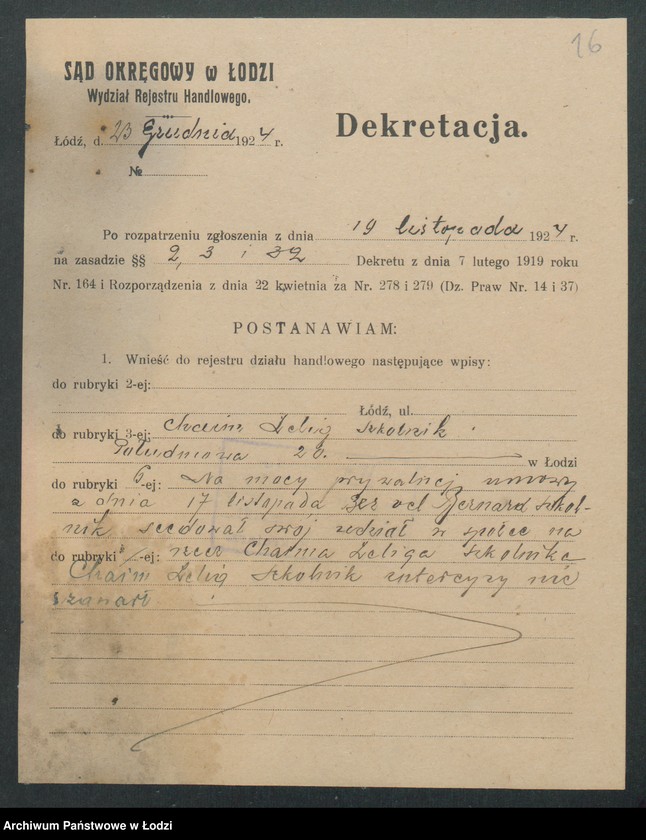 16
SĄD OKRĘGOWY w ŁODZI
Wydział Rejestru Handlowego.
Dekretacja.
Łódź, d. 23 Grudnia 1924 r.
№
Po rozpatrzeniu zgłoszenia z dnia 19 listopada 1924 r.
na zasadzie §§ 2, 3 i 32 Dekretu z dnia 7 lutego 1919 roku
Nr. 164 i Rozporządzenia z dnia 22 kwietnia za Nr. 278 i 279 (Dz. Praw Nr. 14 i 37)
POSTANAWIAM:
1. Wnieść do rejestru działu handlowego następujące wpisy:
do rubryki 2-ej:
Łódź, ul.
do rubryki 3-ej: Chaim Zelig Szkolnik.
Południowa 20. w Łodzi
do rubryki 6-ej: Na mocy prywatnej umowy
z dnia 17 listopada Ber vel Bernard Szkol-
nik scedował swój udział w spółce na
do rubryki -ej: rzecz Chaima Zeliga Szkolnika
Chaim Zelig Szkolnik intercyzy nie
zawarł
Archiwum Państwowe w Łodzi